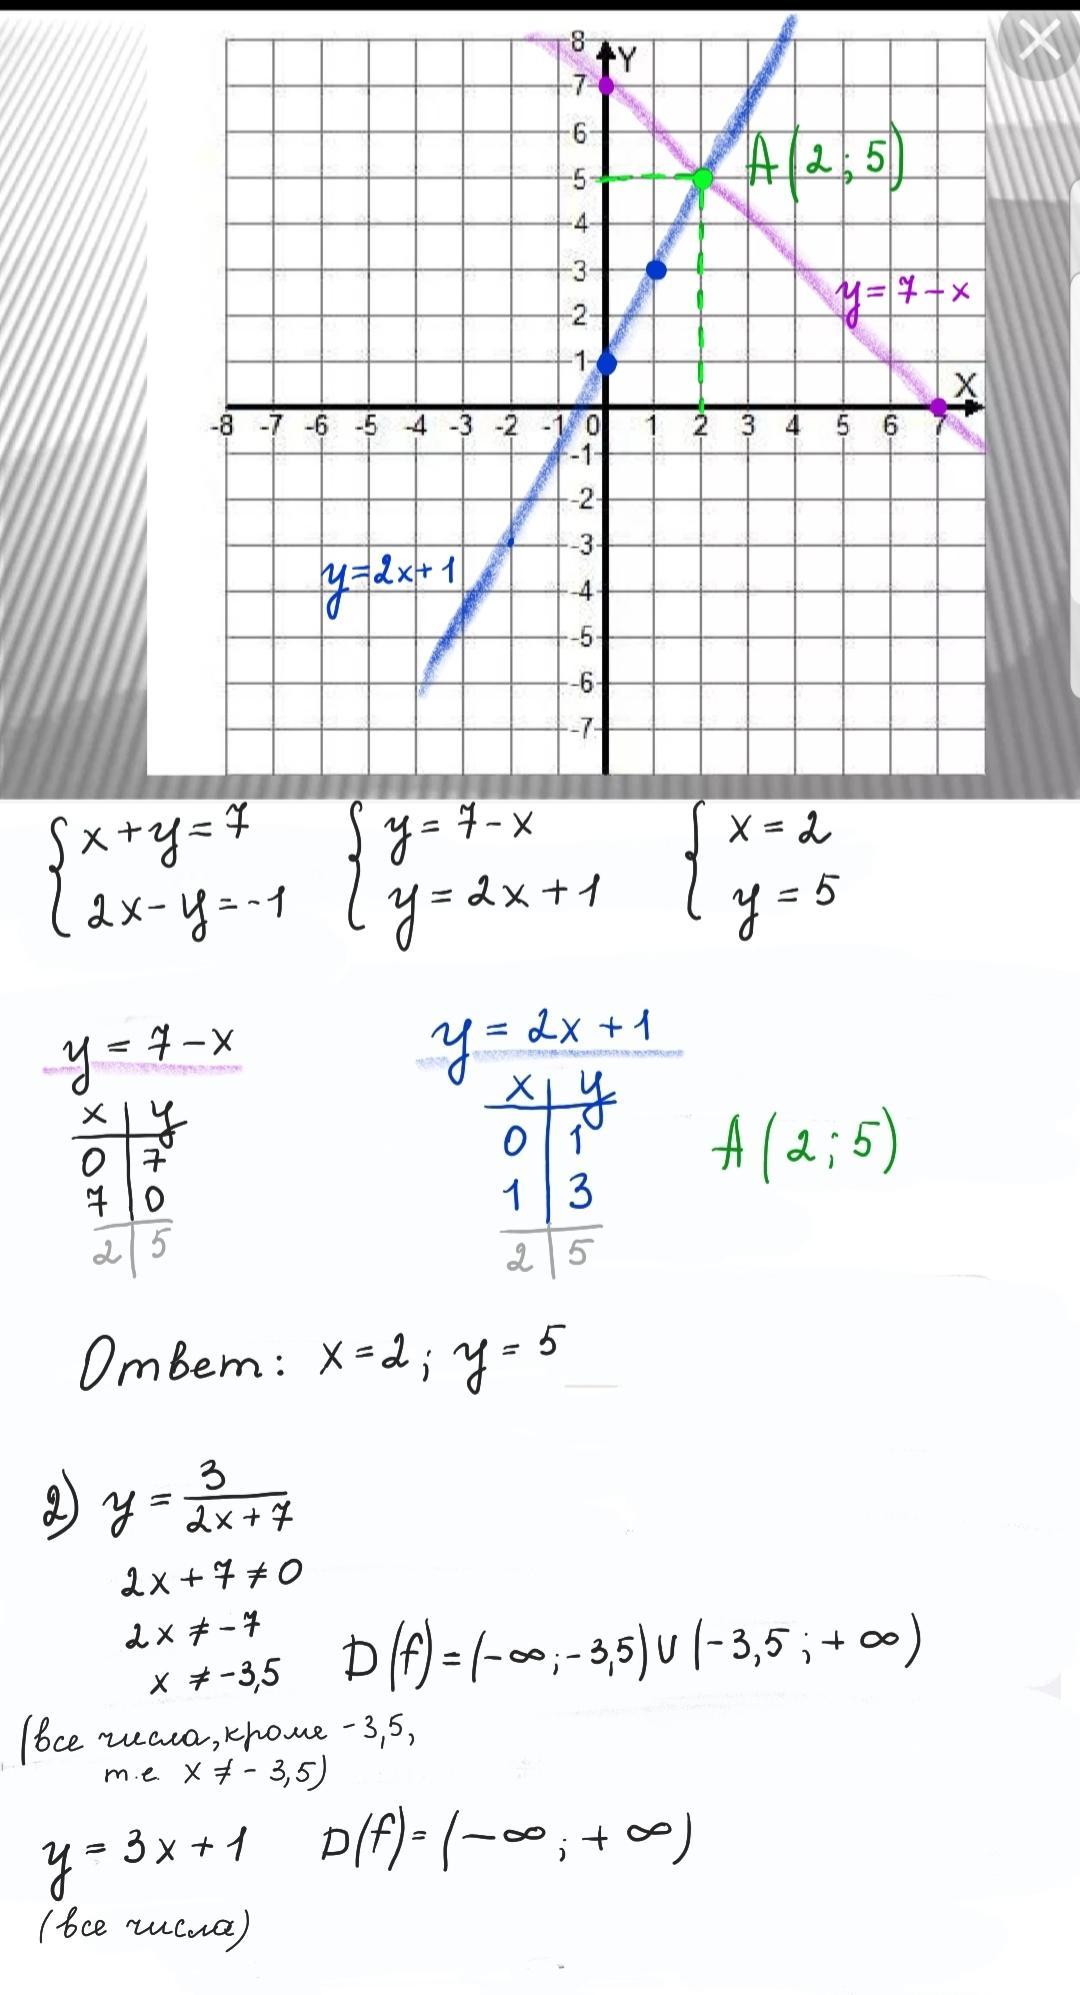 8
Y
7
6
A(2;5)
5
4
3
y=7-x
2
1
X
-8 -7 -6 -5 -4 -3 -2 -1 0 1 2 3 4 5 6 7
-1
-2
-3
y=2x+1
-4
-5
-6
-7
{x+y=7 {y=7-x {x=2
2x-y=-1 y=2x+1 y=5
y=7-x y=2x+1
x|y x|y
0|7 0|1 A(2;5)
7|0 1|3
2|5 2|5
Ответ: x=2; y=5
2) y=3/(2x+7)
2x+7≠0
2x≠-7
x≠-3,5 D(f)=(-∞;-3,5)∪(-3,5;+∞)
(все числа, кроме -3,5,
т.е. x≠-3,5)
y=3x+1 D(f)=(-∞;+∞)
(все числа)